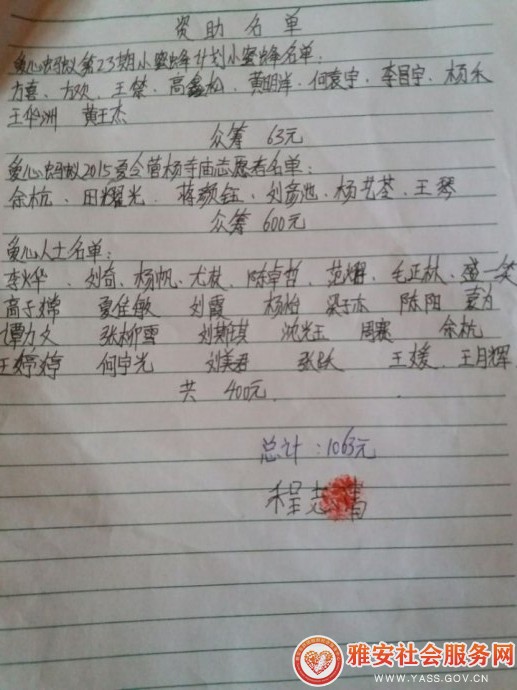 资助名单
爱心蚂蚁第23期小蜜蜂计划小蜜蜂名单:
方喜、方欢、王荣、高鑫松、黄明岸、何袁宇、李昌宇、杨禾
王伶洲 黄王杰
众筹 63元
爱心蚂蚁2015夏令营杨寺庙志愿者名单:
余杭、田耀光、蒋颜钰、刘彦池、杨艺荃、王琴
众筹 600元
爱心人士名单:
李烨、刘奇、杨帆、尤、陈卓哲、范、毛正林、一笑
高于婷 夏佳敏 刘霞 杨怡 梁于杰 陈阳
谭力文 张柳雪 刘斯琪 沈光玉 周赛 余杭
王婷婷 何宇光 刘美君 张跃 王媛、王月辉
共 400元.
总计:1063元
程志清
雅安社会服务网
WWW.YASS.GOV.CN